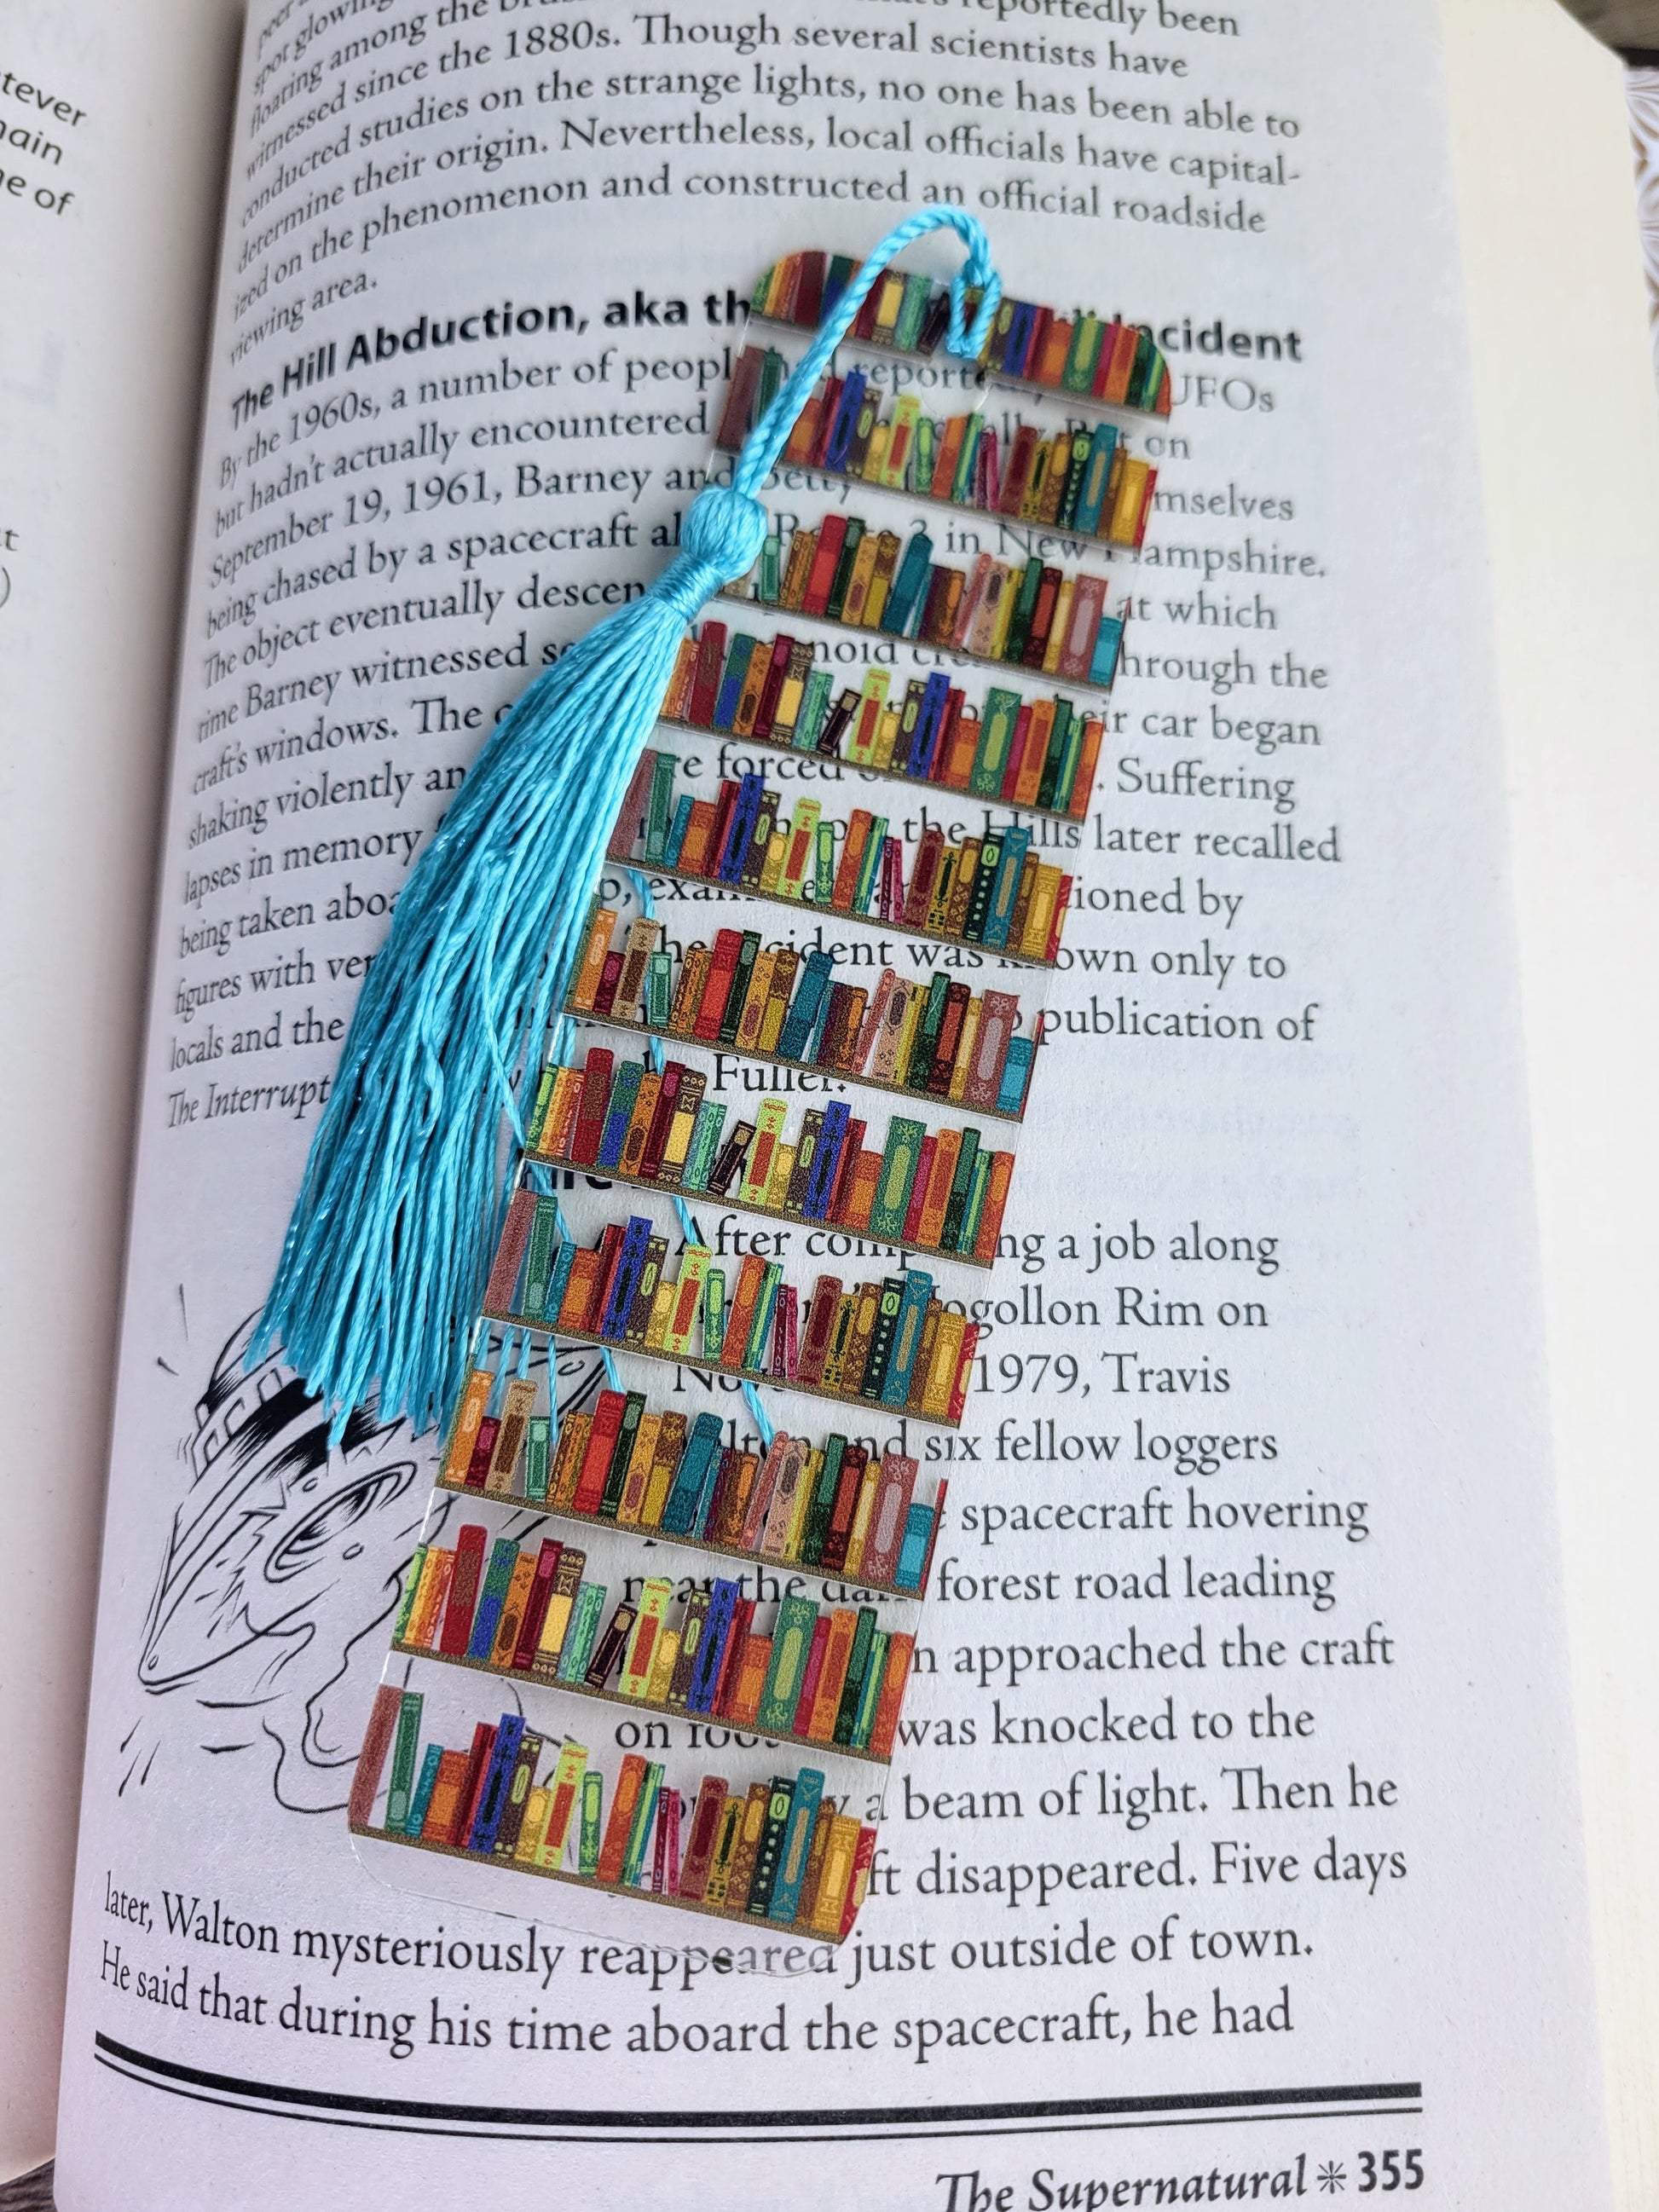 tever
ain
e of
t
)
peer
spot glowing reportedly been
floating among the
witnessed since the 1880s. Though several scientists have
conducted studies on the strange lights, no one has been able to
determine their origin. Nevertheless, local officials have capital-
ized on the phenomenon and constructed an official roadside
viewing area.
The Hill Abduction, aka th ncident
By the 1960s, a number of peopl d reporte UFOs
but hadn't actually encountered ally. But on
September 19, 1961, Barney and Betty mselves
being chased by a spacecraft al R 3 in New Hampshire.
The object eventually descen at which
time Barney witnessed so noid cre hrough the
craft's windows. The eir car began
shaking violently an re forced . Suffering
lapses in memory the Hills later recalled
being taken aboa p, exam ioned by
figures with ver he incident was known only to
locals and the publication of
The Interrupt Fuller.
ire
After comp ng a job along
ogollon Rim on
Nov 1979, Travis
lton and six fellow loggers
spacecraft hovering
near the da forest road leading
n approached the craft
on foot was knocked to the
y a beam of light. Then he
ft disappeared. Five days
later, Walton mysteriously reappeared just outside of town.
He said that during his time aboard the spacecraft, he had
The Supernatural ✳ 355